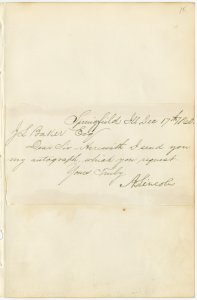 Springfield Ills Dec 17th 1860
J S Baker Esq
Dear Sir Herewith I send you
my autograph, which you request.
Yours Truly
A Lincoln